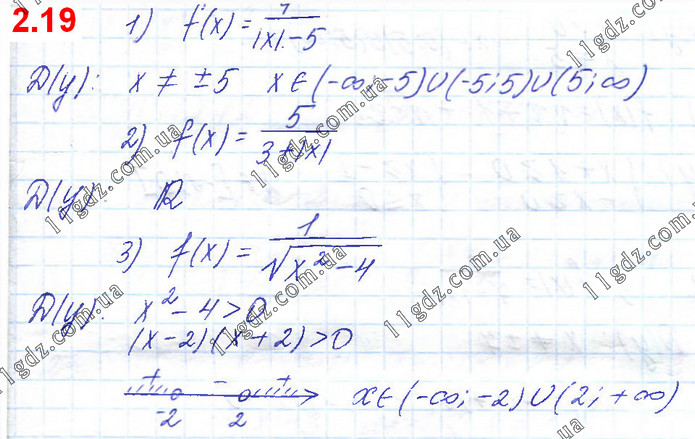 2.19
1) f(x) = 7/(|x| - 5)
D(y): x ≠ ±5 x ∈ (-∞; -5) ∪ (-5; 5) ∪ (5; ∞)
2) f(x) = 5/(3+|x|)
D(y): R
3) f(x) = 1/√(x² - 4)
D(y): x² - 4 > 0
(x-2)(x+2) > 0
+ - +
-2 2 x ∈ (-∞; -2) ∪ (2; +∞)
11gdz.com.ua
11gdz.com.ua
11gdz.com.ua
11gdz.com.ua
11gdz.com.ua
11gdz.com.ua
11gdz.com.ua
11gdz.com.ua